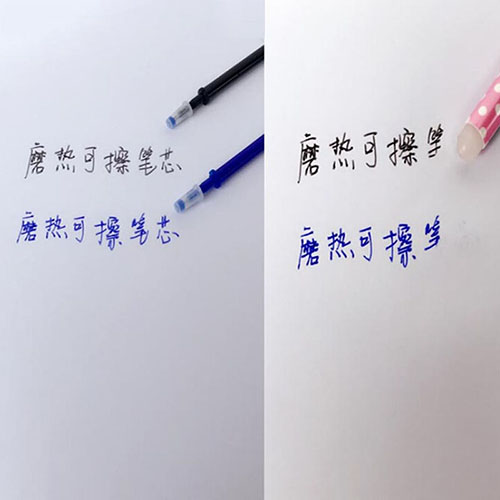 磨热可擦笔芯
磨热可擦笔芯
磨热可擦笔
磨热可擦